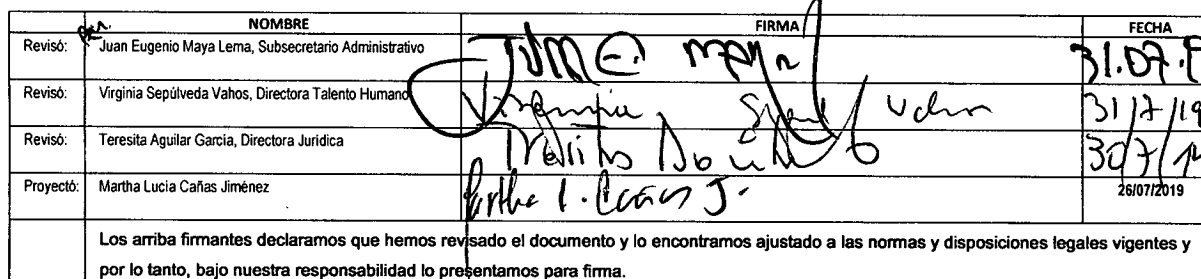 NOMBRE FIRMA FECHA
Revisó: Juan Eugenio Maya Lema, Subsecretario Administrativo 31.07.19
Revisó: Virginia Sepúlveda Vahos, Directora Talento Humano Virginia 31/7/19
Revisó: Teresita Aguilar García, Directora Jurídica 30/7/19
Proyectó: Martha Lucia Cañas Jiménez Martha l. Cañas J. 26/07/2019
Los arriba firmantes declaramos que hemos revisado el documento y lo encontramos ajustado a las normas y disposiciones legales vigentes y
por lo tanto, bajo nuestra responsabilidad lo presentamos para firma.